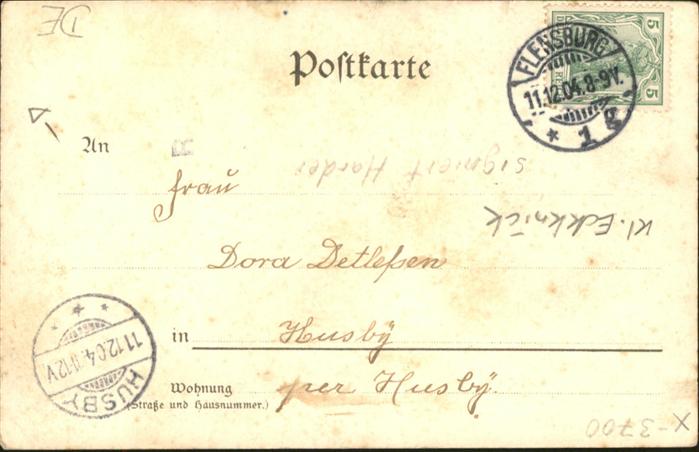 DE
Postkarte
5 5
FLENSBURG
11.12.04.8-9V.
* 1 g
An
R
signiert Harder
Frau
Kl. Eckknick
Dora Detleßen
in Husbÿ
11.12.04.11-12V
HUSBY
Wohnung
(Straße und Hausnummer.)
per Husbÿ.
X-3700